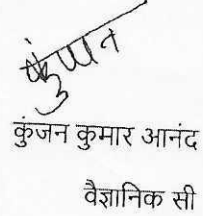 कुंजन
कुंजन कुमार आनंद
वैज्ञानिक सी